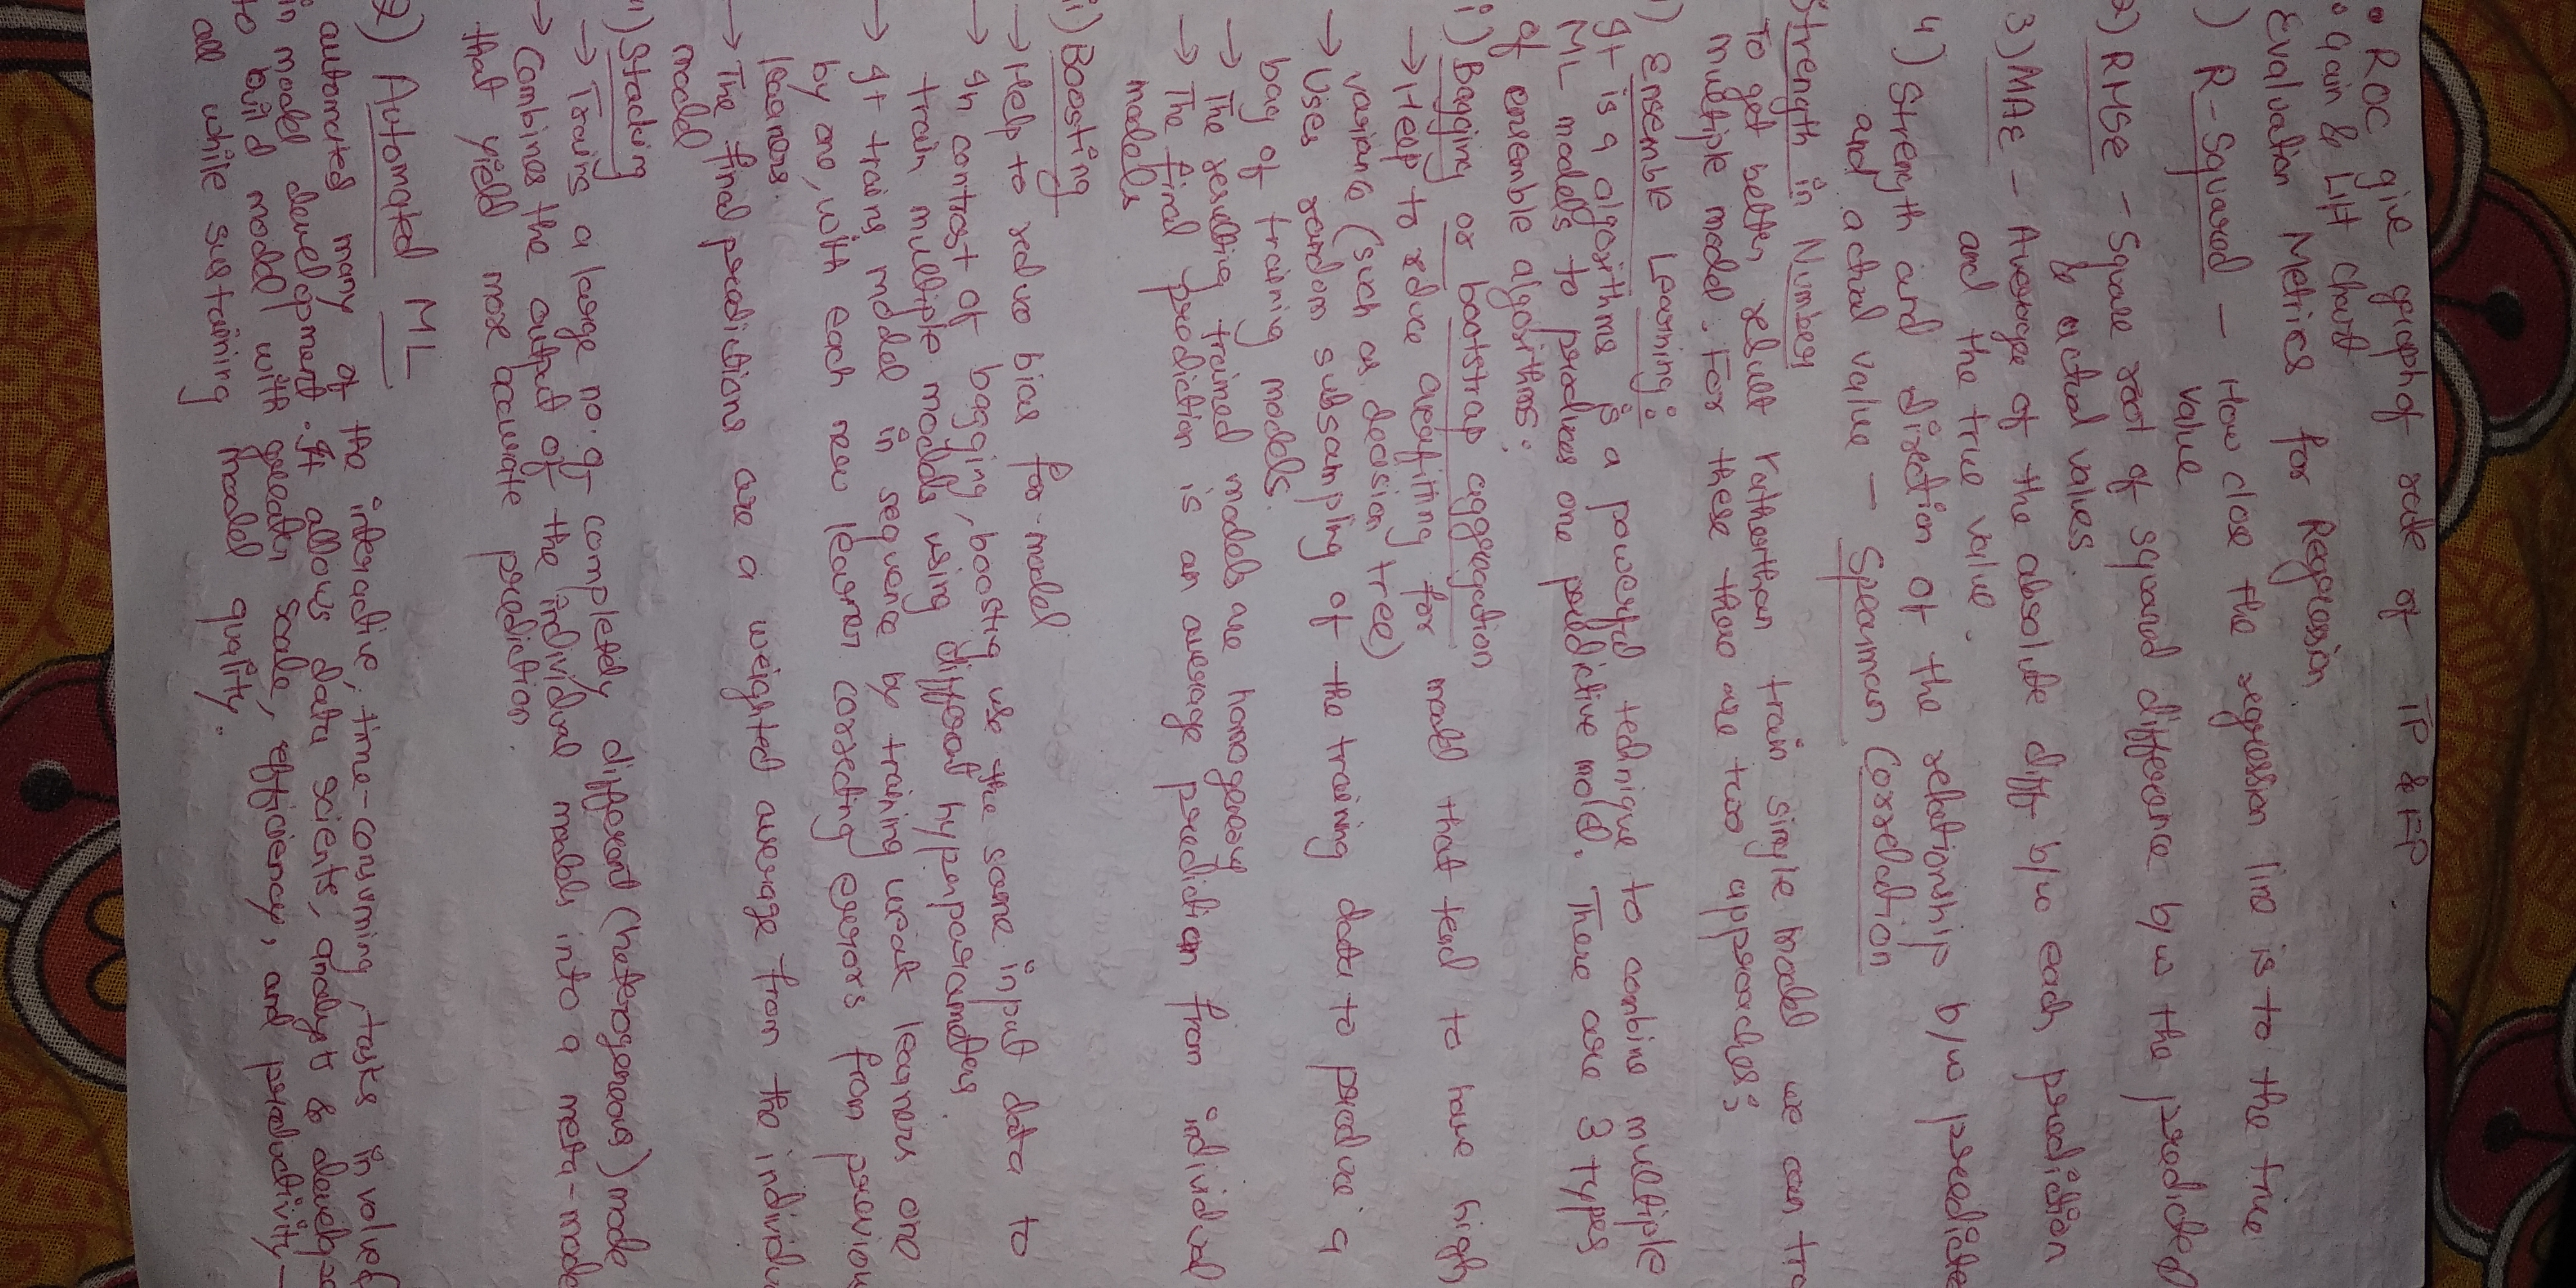 • ROC give graph of rate of TP & FP.
• Gain & Lift chart
Evaluation Metrics for Regression.
) R-Squared – How close the regression line is to the true
value
2) RMSE – Square root of squared difference b/w the predicted
& actual values.
3) MAE – Average of the absolute diff b/w each prediction
and the true value.
4) Strength and direction of the relationship b/w predicte
and actual value – Spearman Correlation
Strength in Number
To get better result rather than train single model we can tra
multiple model. For these there are two approaches:-
1) Ensemble Learning:
It is a algorithms is a powerful technique to combine multiple
ML models to produces one predictive model. There are 3 types
of ensemble algorithms:
i) Bagging or bootstrap aggregation
→ Help to reduce overfitting for model that tend to have high
variance (such as decision tree)
→ Uses random subsampling of the training data to produce a
bag of training models.
→ The resulting trained models are homogenous
→ The final prediction is an average prediction from individual
models
ii) Boosting
→ Help to reduce bias for model
→ In contrast of bagging, boosting use the same input data to
train multiple models using different hyperparameters.
→ It trains model in sequence by training weak learners one
by one, with each new learner correcting errors from previou
learners.
→ The final predictions are a weighted average from the individu
model
iii) Stacking
→ Trains a large no. of completely different (heterogenous) mode
→ Combines the output of the individual models into a meta-mode
that yield more accurate prediction.
2) Automated ML
automated many of the interactive, time-consuming, tasks involved
in model development. It allows data scients, analyst & develop
to build model with greater scale, efficiency, and productivity –
all while sustaining model quality.